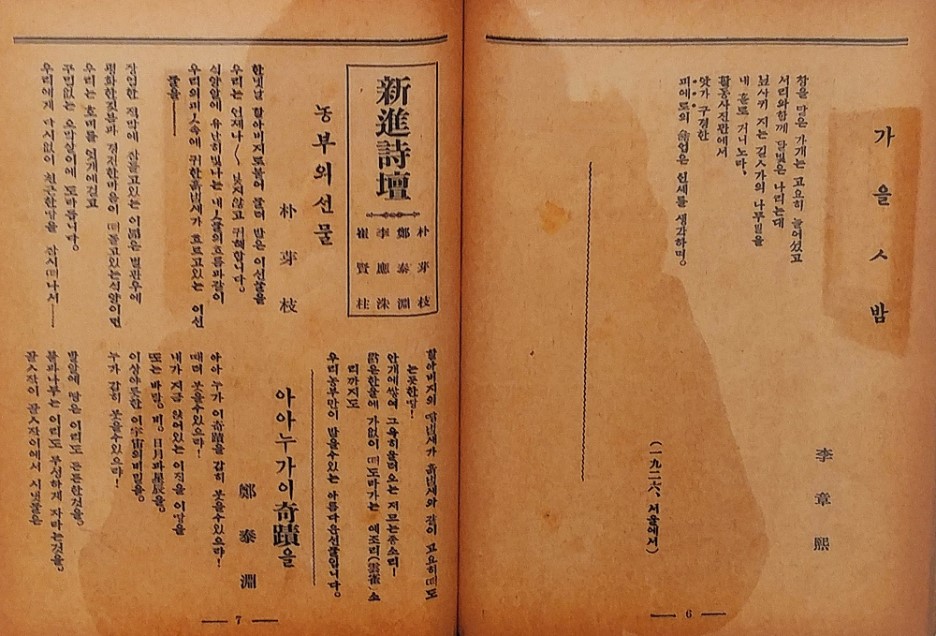 가을ㅅ밤
李章熙
창을 닫은 가개는 고요히 늘어섰고
서리와함께 달빛은 나리는대
지는 길ㅅ가의 나무밑을
내 홀로 거니노라,
활동사진관에서
앗가 구경한
피에로의 신세를 생각하며.
(一九二六、서울에서)
6
新進詩壇
朴芽枝
鄭泰淵
李應洙
崔賢柱
농부의선물
朴芽枝
한아버지로붙어 물려 받은 이선물을
우리는 언제나 〱 낮지않고 귀해합니다。
석양알에 유난히 빛나는 내ㅅ물의흐름과같이
우리의피ㅅ속에 귀한흙냄새가 흐르고있는 이선
물을——
장엄한 적막에 잠들고있는 이 넓은 벌판우에
평화한짓붉과 경건한마음이 떠돌고있는석양이면
우리는 호미를 엇개에걸고
구믿없는 오막살이에 도라옵니다。
우리에게 다시없이 친근한땅을 잠시떠나서——
할아버지의 땀냄새가 흙냄새와 같이 고요히떠도
는듯한땅!
안개에쌓여 그윽히울려 오는 저므는종소리—
맑은한울에 가없이 떠도라가는 예조리(雲雀) 소
리까지도
우리농부만이 받을수있는 아름다운선물입니다。
아아누가이奇蹟을
鄭泰淵
아아 누가 이奇蹟을 감히 못을수있으랴!
때며 못을수있으랴!
내가 지금 앉어있는 이직을 이땅을
또는 바람, 비, 日月과星辰을,
이상야릇한 이宇宙의비밀을,
누가 감히 못을수있으랴!
발알에 땅은 이리도 든든한것을,
풀과나무는 이리도 무성하게 자라는것을,
골ㅅ작이 골ㅅ작이에서 시냇물은
7